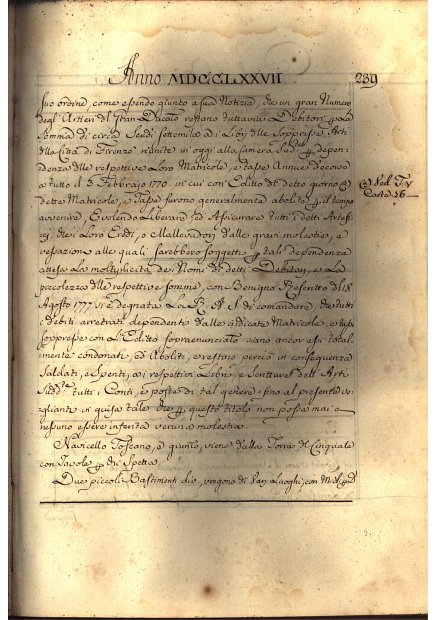 Anno MDCCLXXVII. 239
suo ordine, come essendo giunto a sua Notizia, che un gran Numero
degl'Artieri del Gran Ducato restano tuttavia Debitori p la
Somma di circa Scudi settemila a i Libri delle Soppresse Arti
della Città di Firenze riunite in oggi alla Camera sudd.a p depen-
denza delle respettive Loro Matricole, e Tasse Annue decorse
a tutto il 3 Febbraio 1770. in cui con Editto di detto giorno
dette Matricole, e Tasse furono generalmente abolite p il tempo
avvenire, E volendo Liberare, ed Assicurare tutti i detti Artef-
ici, che i Loro Eredi, o Mallevadori dalle gravi molestie, e
vessazioni alle quali sarebbero soggetti p tali dependenze
attesa La moltiplicità dei Nomi di detti Debitori, e La
piccolezza delle respettive somme, con Benigno Rescritto del 18
Agosto 1777 si è degnata La R. A. S. di comandare, che tutti
i debiti arretrati dependenti dalle indicate Matricole, e tasse
soppresse con L'Editto sopraenunciato siano ancor essi total-
mente condonati, ed Aboliti, e restino perciò in conseguenza
Saldati, e Spenti, a i respettivi Libri, e Scritture dell'Arti
sudd.e tutti i Conti, e poste di tal genere fino al presente ve-
glianti in guisa tale che p questo titolo non possa mai a
nessuno essere inferita veruna molestia.
Navicello Toscano, è giunto, viene dalla Torre del Cinquale
con Tavole p di Spetta
Due piccoli Bastimenti div. vengono di Luoghi, con
Ved. T. V
Carta 26